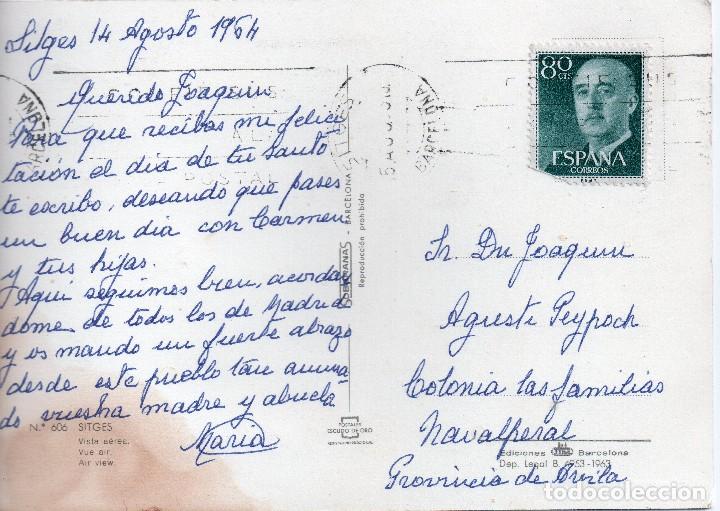 Sitges 14 Agosto 1964
Querido Joaquin
Para que recibas mi felici
tación el dia de tu santo
te escribo, deseando que pases
un buen dia con Carmen
y tus hijas.
Aqui seguimos bien, acordan
dome de todos los de Madrid
y os mando un fuerte abrazo
desde este pueblo tan anima-
do vuestra madre y abuela
Maria
N.º 606 SITGES
Vista aérea.
Vue air.
Air view.
BARCELONA
Reproducción prohibida
POSTALES
ESCUDO DE ORO
BARCELONA
80
CTS
ESPAÑA
CORREOS
Sr. Dn Joaquin
Agusti Peypoch
Colonia las familias
Navalperal
Ediciones Barcelona
Dep. Legal B. 6753-1963
Provincia de Avila
todocoleccion